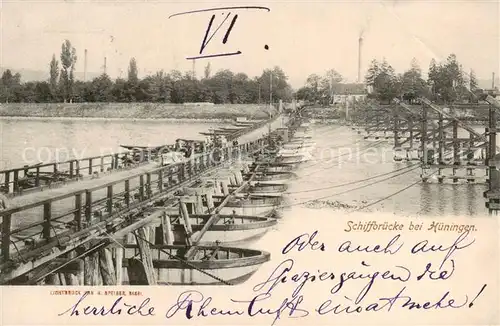 VI.
Schiffbrücke bei Hüningen.
Oder auch auf
Spaziergängen die
LICHTDRUCK VON A. SPEISER, BASEL.
herrliche Rheinluft einatmete!